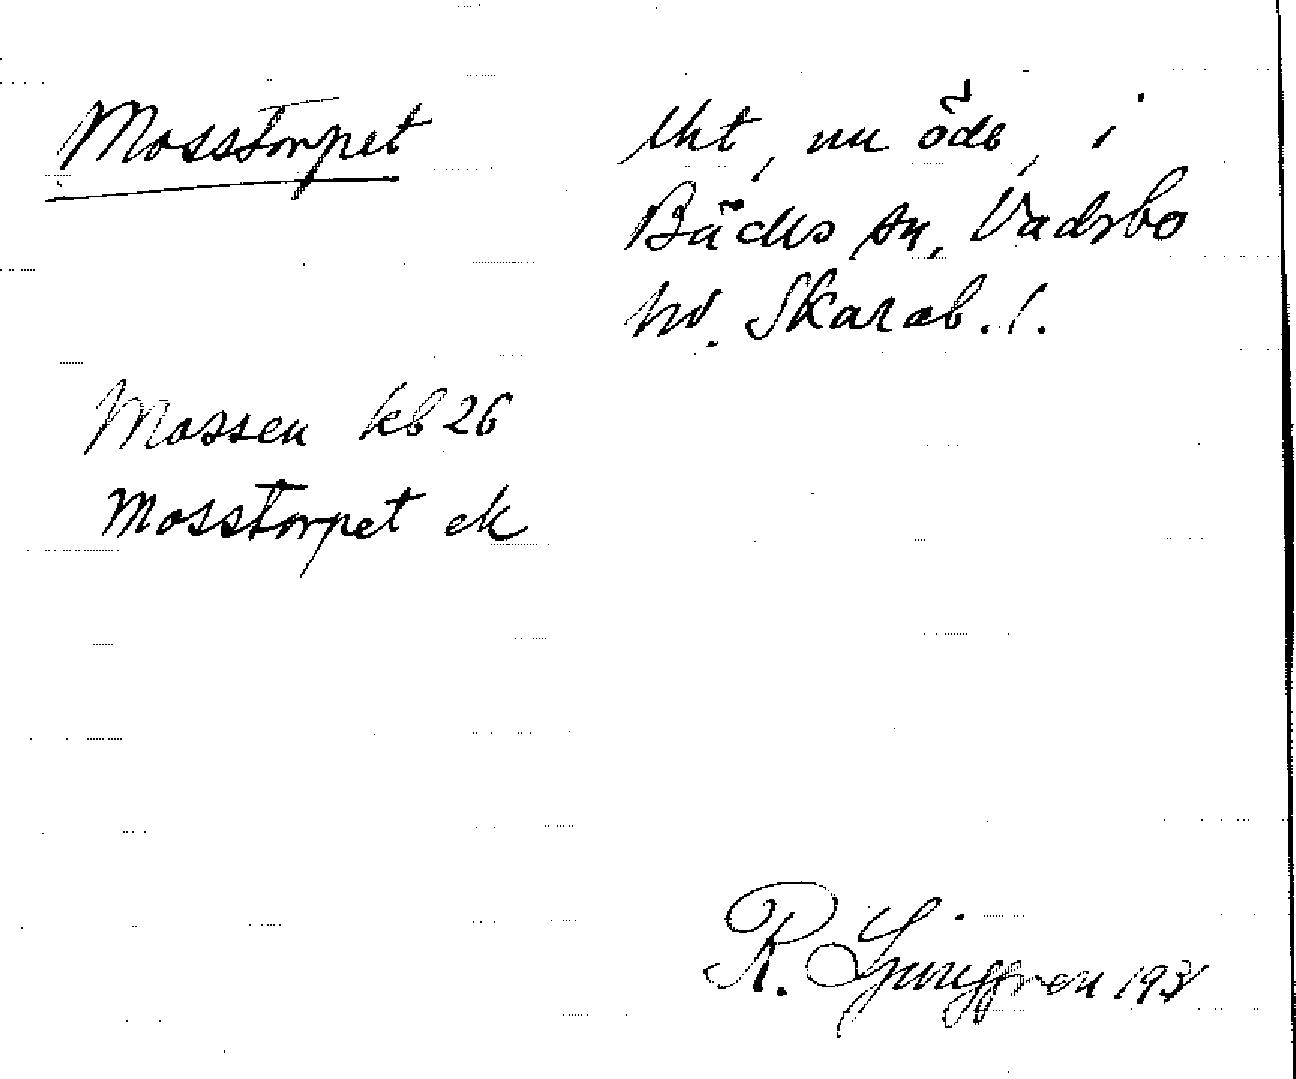 Mosstorpet
lht, nu öde, i
Bäcks sn, Vadsbo
hd. Skarab. l.
Mossen kb 26
Mosstorpet ek
R. Ljunggren